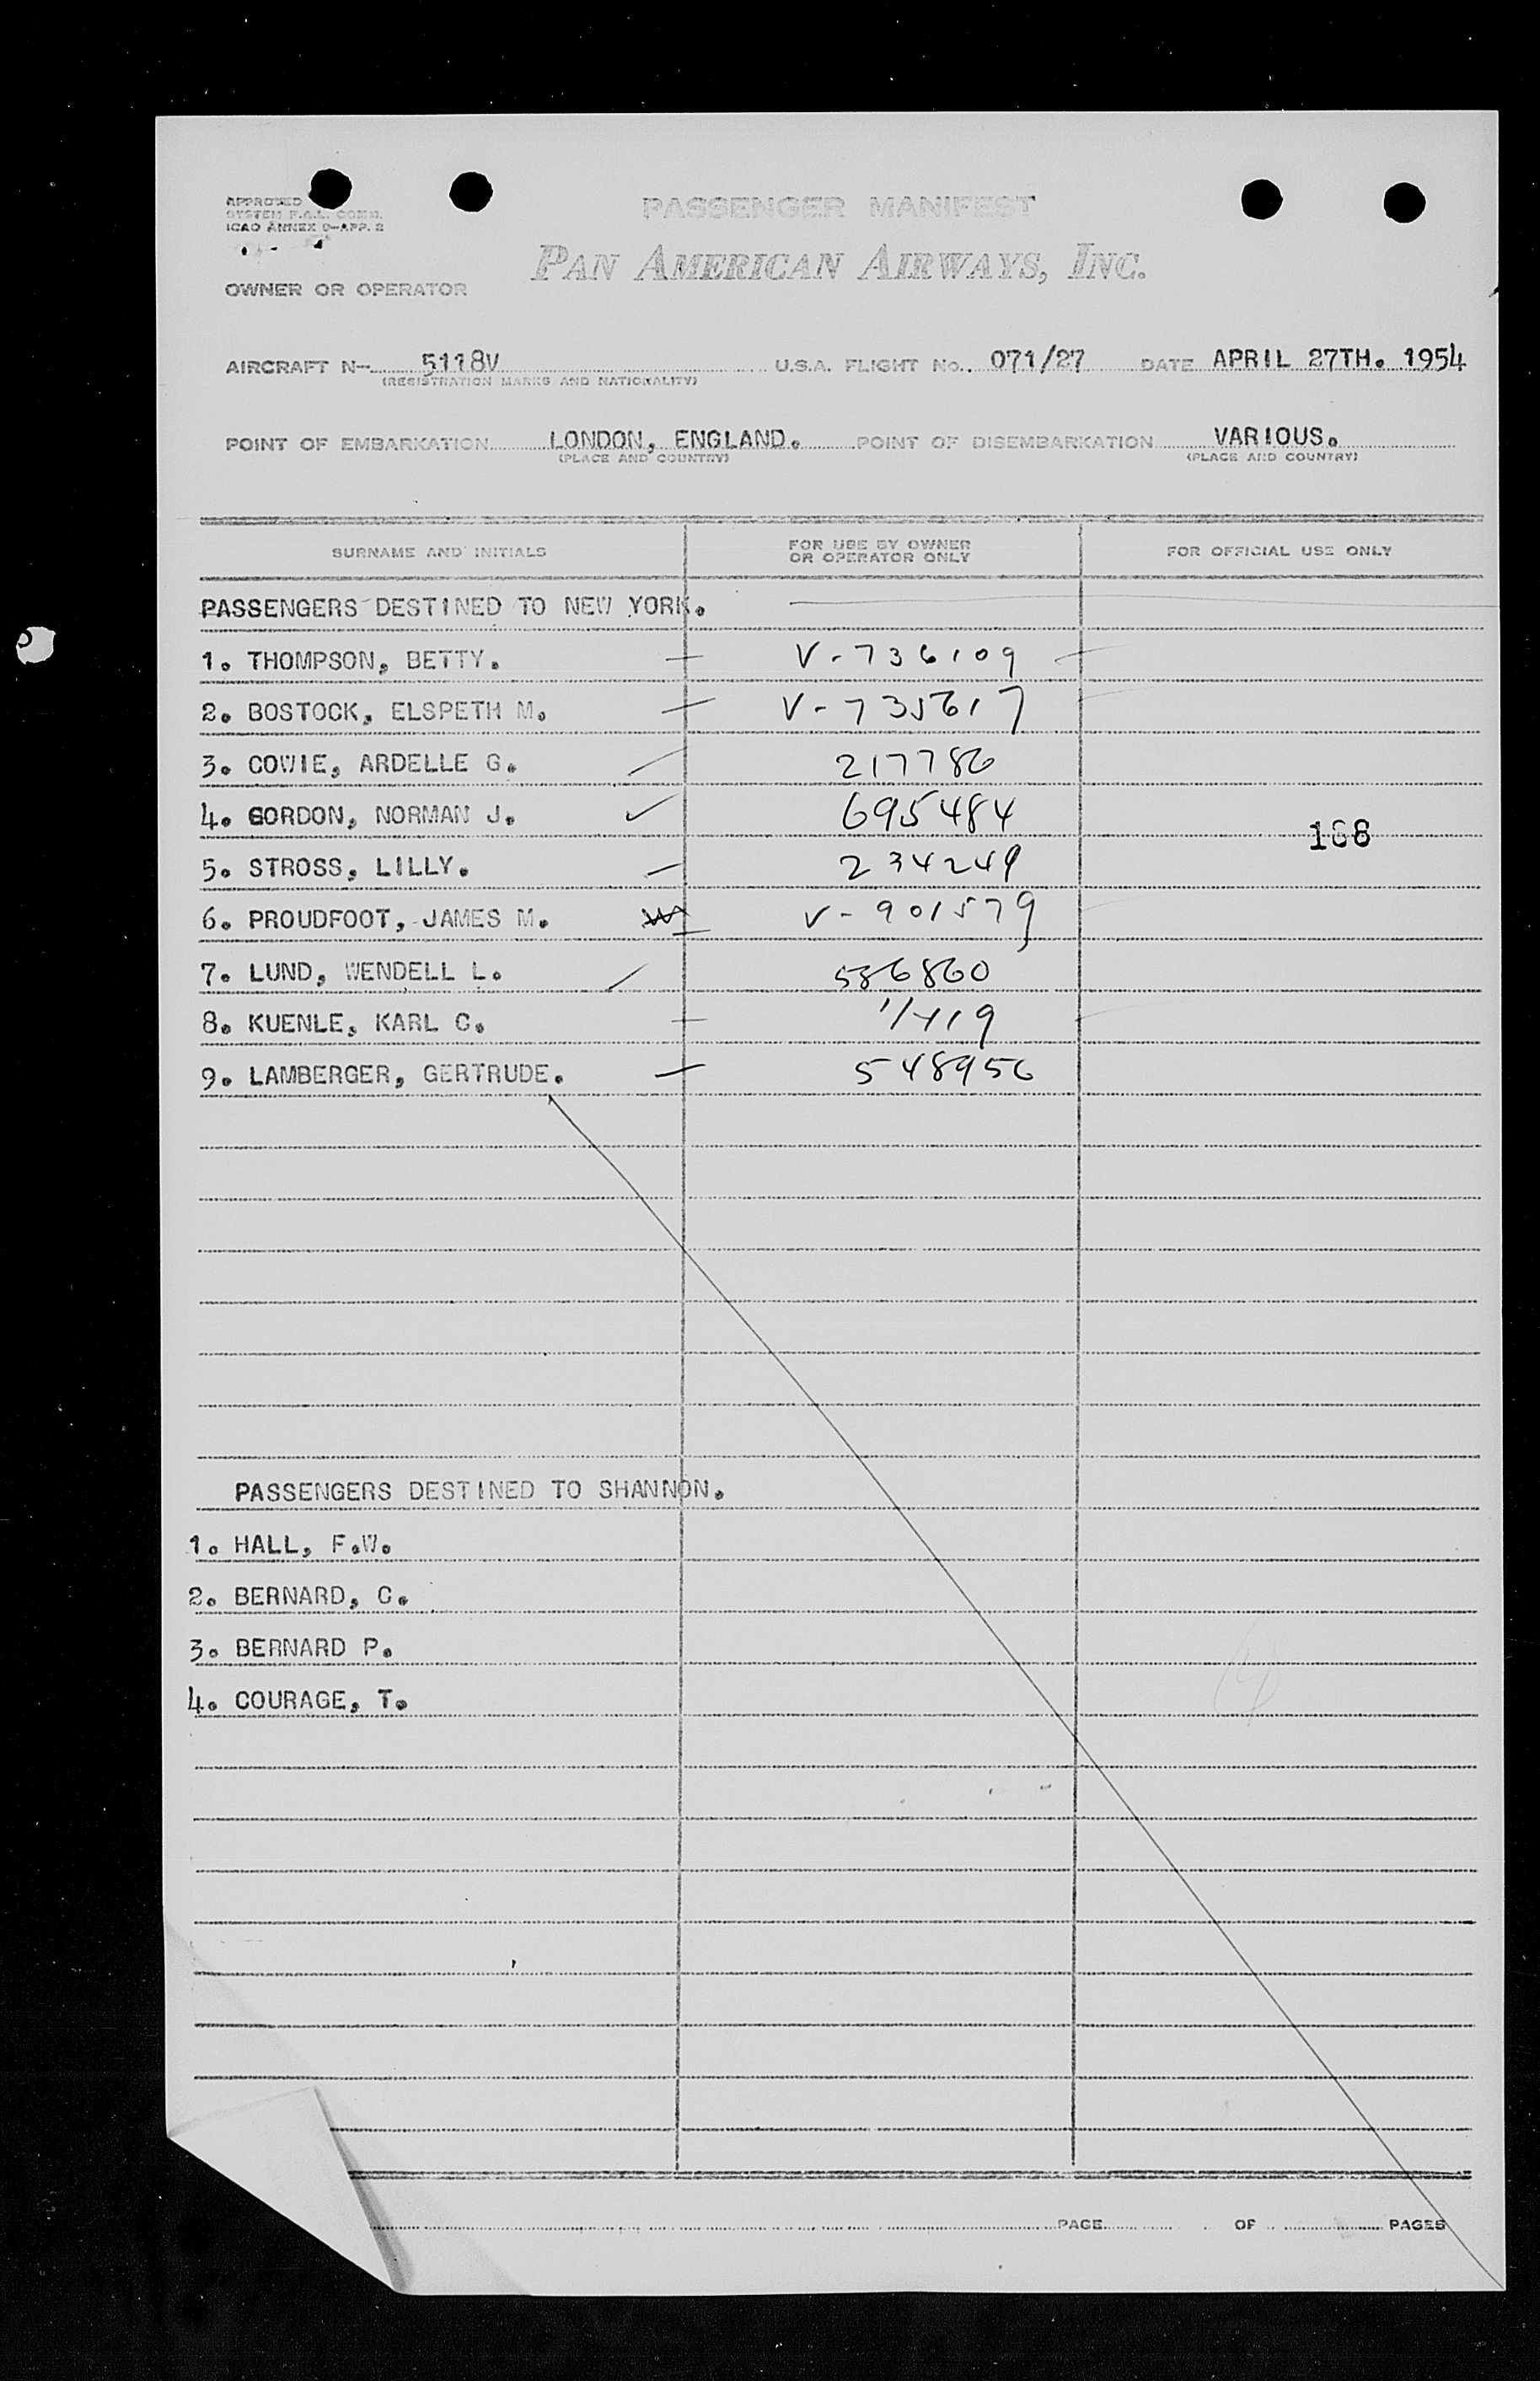 APPROVED
SYSTEM F.A.L. COMM.
ICAO ANNEX 9-APP. 2
PASSENGER MANIFEST
PAN AMERICAN AIRWAYS, INC.
OWNER OR OPERATOR
AIRCRAFT N- 5118V U.S.A. FLIGHT No. 071/27 DATE APRIL 27TH. 1954
(REGISTRATION MARKS AND NATIONALITY)
POINT OF EMBARKATION LONDON, ENGLAND. POINT OF DISEMBARKATION VARIOUS.
(PLACE AND COUNTRY) (PLACE AND COUNTRY)
SURNAME AND INITIALS FOR USE BY OWNER OR OPERATOR ONLY FOR OFFICIAL USE ONLY
PASSENGERS DESTINED TO NEW YORK.
1. THOMPSON, BETTY. V-736109
2. BOSTOCK, ELSPETH M. V-735617
3. COWIE, ARDELLE G. 217786
4. GORDON, NORMAN J. 695484
168
5. STROSS, LILLY. 234249
6. PROUDFOOT, JAMES M. V-901579
7. LUND, WENDELL L. 586860
8. KUENLE, KARL C.
9. LAMBERGER, GERTRUDE. 548956
PASSENGERS DESTINED TO SHANNON.
1. HALL, F.W.
2. BERNARD, C.
3. BERNARD P.
4. COURAGE, T.
PAGE OF PAGES